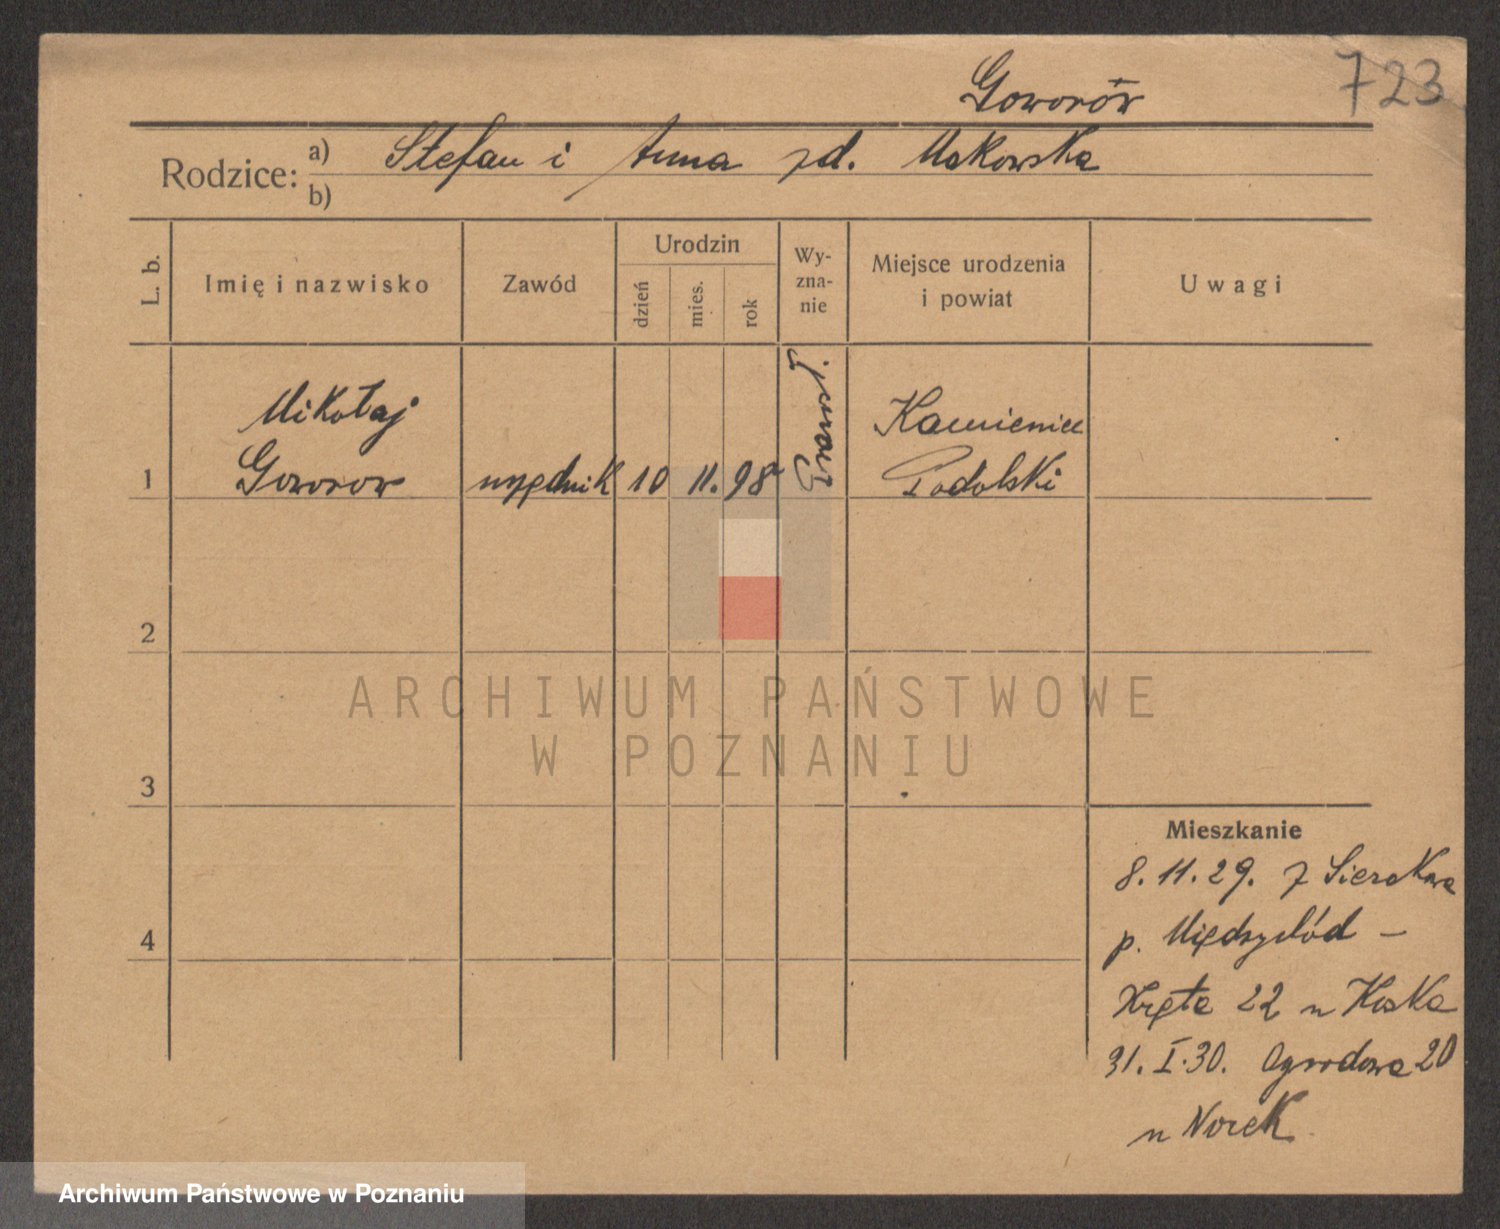 Goworów
723
Rodzice: a) Stefan i Anna zd. Makowska
b)
L. b.
Imię i nazwisko
Zawód
Urodzin
dzień
mies.
rok
Wy-
zna-
nie
Miejsce urodzenia
i powiat
Uwagi
Mikołaj
Goworow
1
urzędnik
10
11.
98
Prawosł.
Kamieniec
Podolski
2
ARCHIWUM PAŃSTWOWE
W POZNANIU
3
Mieszkanie
8.11.29. z Sierakowa
p. Międzychód –
4
Kręta 22 u Koska
31.I.30. Ogrodowa 20
u Norek
Archiwum Państwowe w Poznaniu